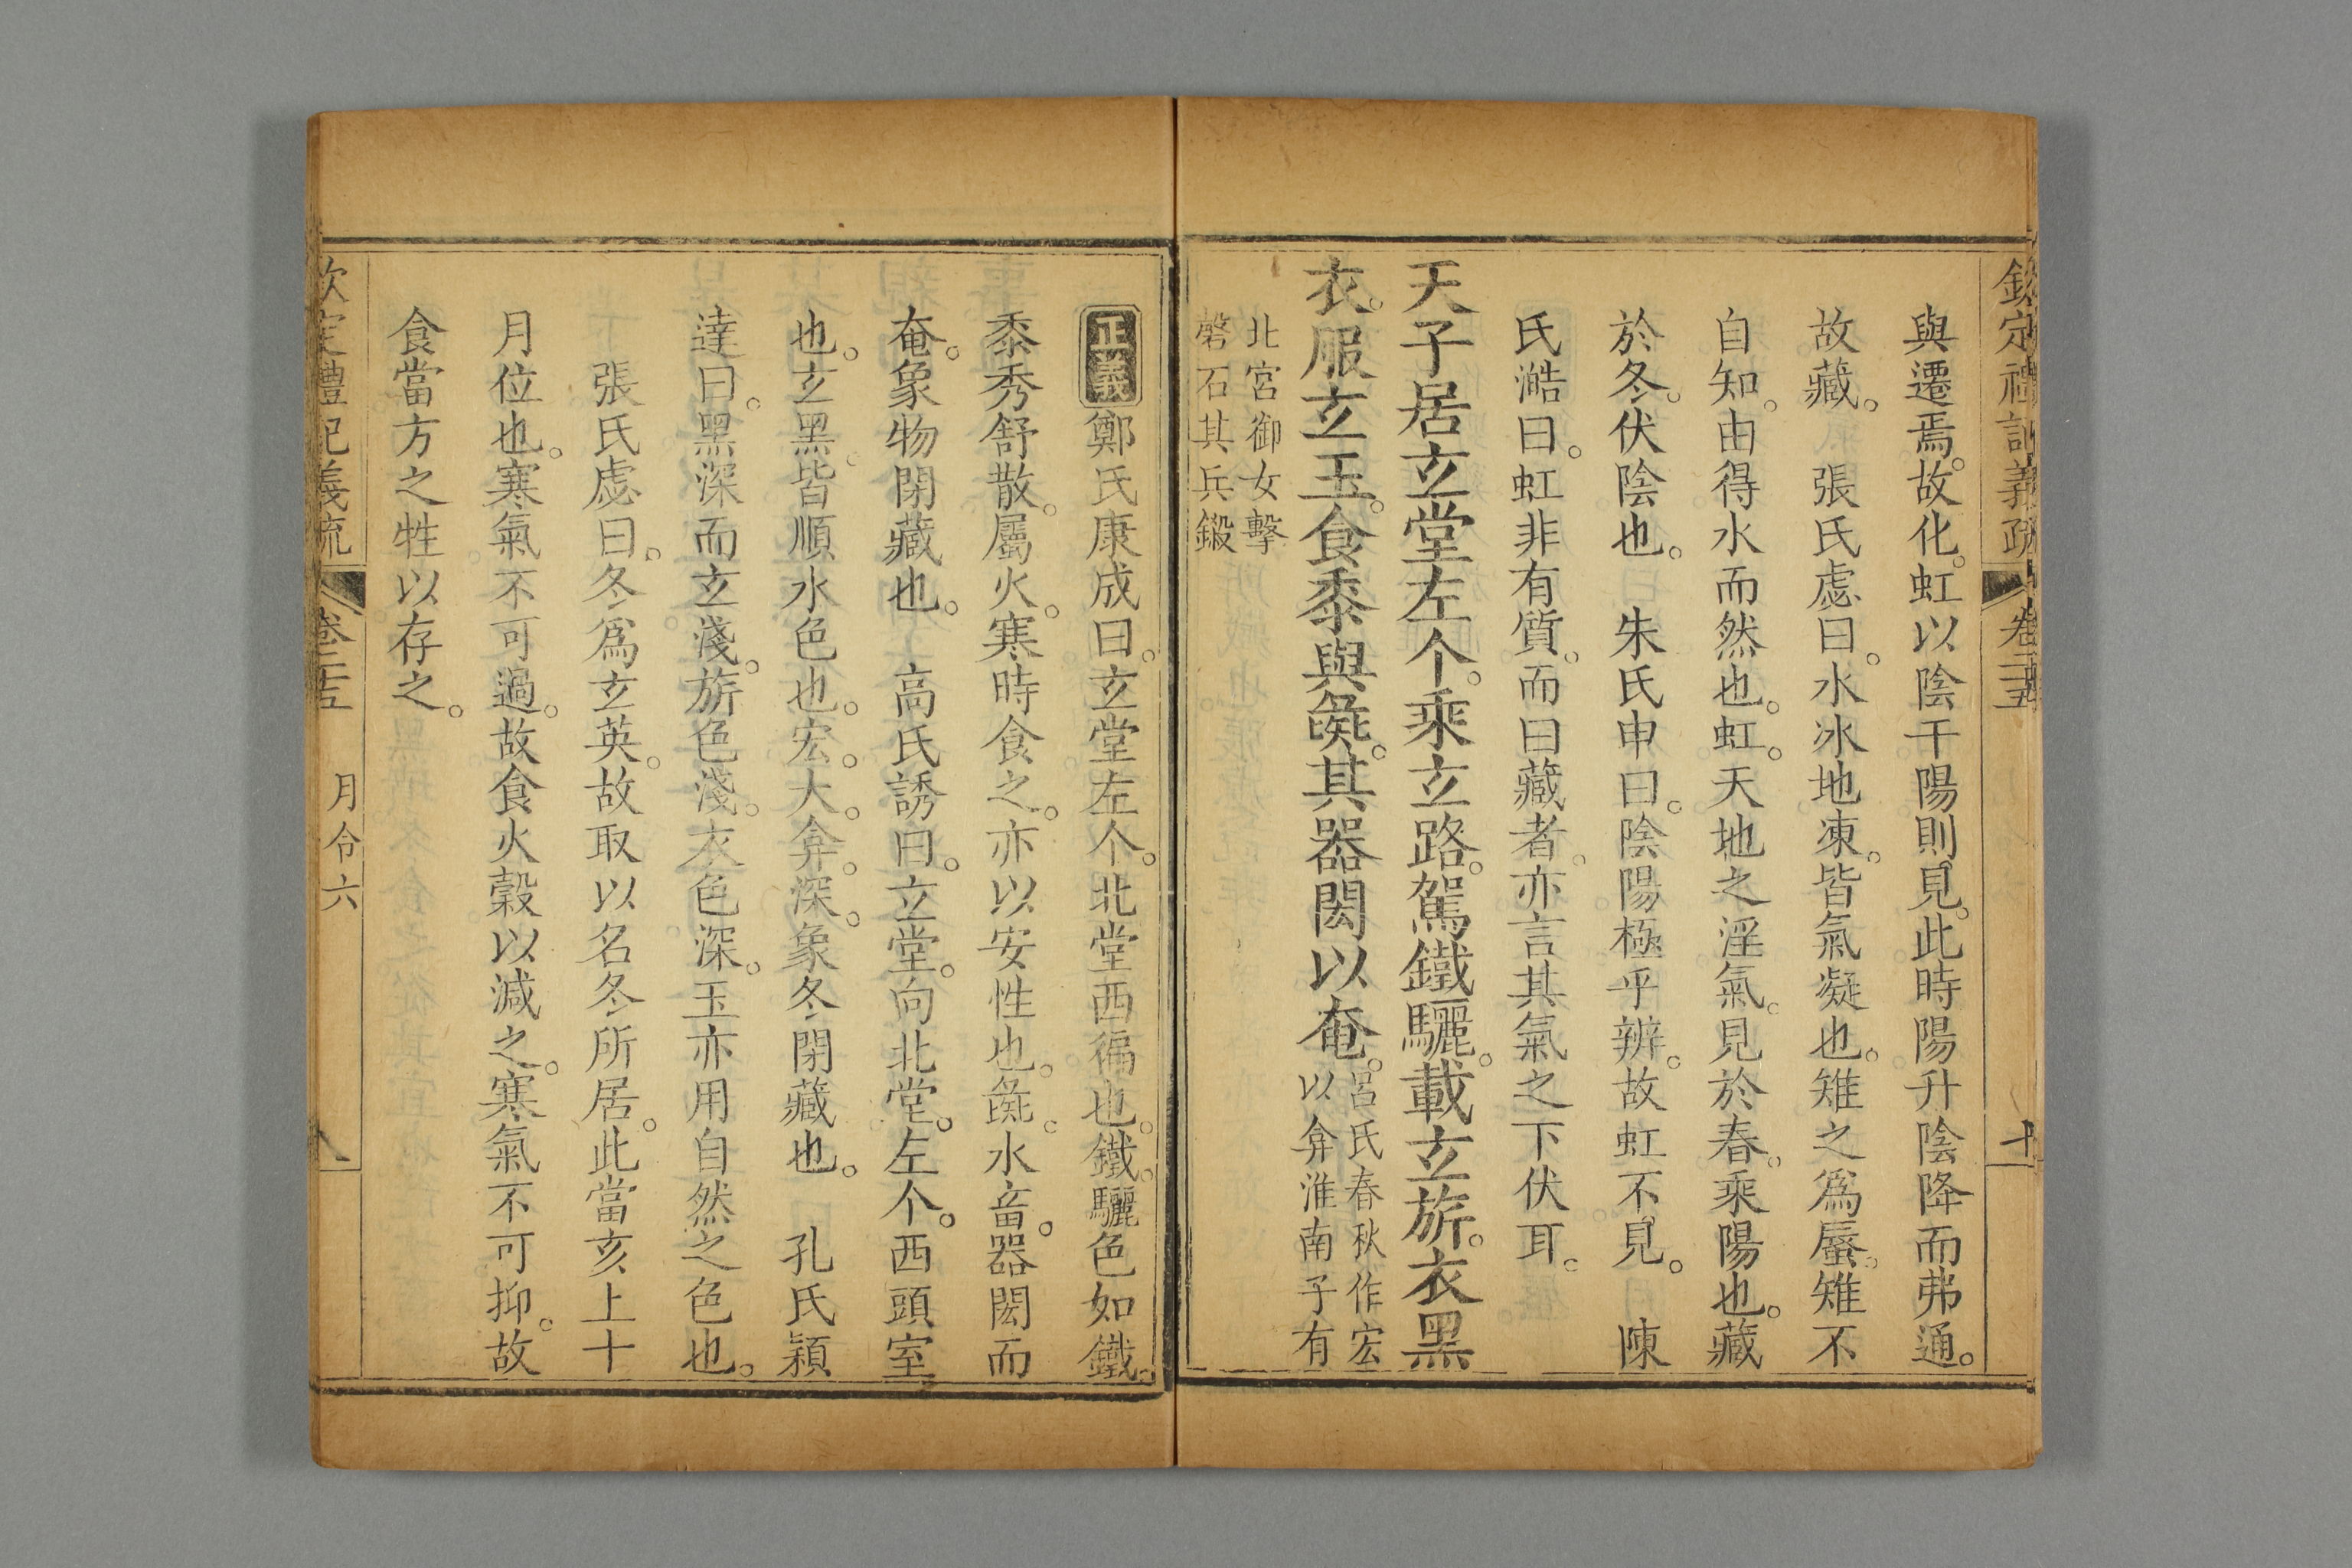 欽定禮記義疏 卷二十五 十
與遷焉。故化。虹以陰干陽則見。此時陽升陰降而弗通。
故藏。 張氏虙曰。水冰地凍。皆氣凝也。雉之爲蜃。雉不
自知。由得水而然也。虹。天地之淫氣。見於春。乘陽也。藏
於冬。伏陰也。 朱氏申曰。陰陽極乎辨。故虹不見。 陳
氏澔曰。虹非有質。而曰藏者。亦言其氣之下伏耳。
天子居玄堂左个。乘玄路。駕鐵驪。載玄旂。衣黑
衣。服玄玉。食黍與彘。其器閎以奄。呂氏春秋作宏以弇淮南子有
北宮御女擊
磬石其兵鍛
正義鄭氏康成曰。玄堂左个。北堂西徧也。鐵驪色如鐵。
黍秀舒散。屬火。寒時食之。亦以安性也。彘。水畜。器閎而
奄。象物閉藏也。 高氏誘曰。玄堂。向北堂。左个。西頭室
也。玄黑。皆順水色也。宏。大。弇。深。象冬閉藏也。 孔氏穎
達曰。黑深而玄淺。旂色淺。衣色深。玉亦用自然之色也。
張氏虙曰。冬爲玄英。故取以名冬所居。此當亥上十
月位也。寒氣不可過。故食火穀以減之。寒氣不可抑。故
食當方之牲以存之。
欽定禮記義疏 卷二十五 月令六